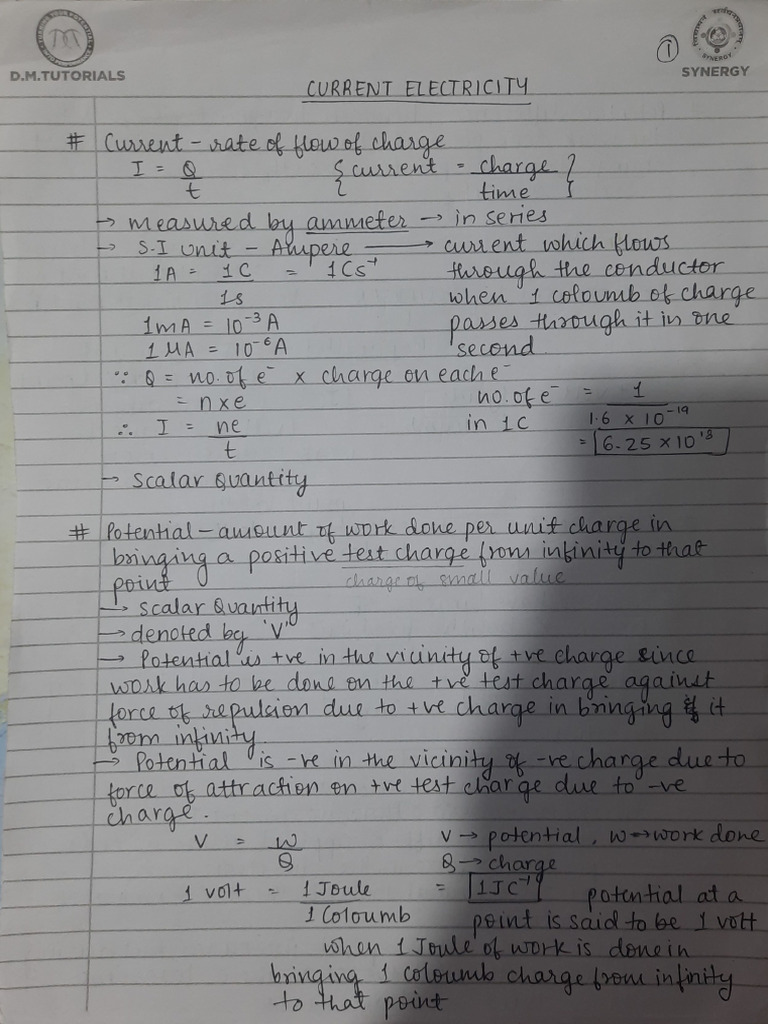 D.M.TUTORIALS
1
SYNERGY
SYNERGY
CURRENT ELECTRICITY
# Current - rate of flow of charge
I = Q/t {current = charge/time}
→ measured by ammeter → in series
→ S.I unit - Ampere → current which flows
1A = 1C/1s = 1Cs⁻¹ through the conductor
when 1 coloumb of charge
1mA = 10⁻³A passes through it in one
1μA = 10⁻⁶A second
∵ Q = no. of e⁻ x charge on each e⁻
= n x e no. of e⁻ in 1C = 1/1.6 x 10⁻¹⁹
∴ I = ne/t = 6.25 x 10¹⁸
→ Scalar Quantity
# Potential - amount of work done per unit charge in
bringing a positive test charge from infinity to that
point charge of small value
→ Scalar Quantity
→ denoted by 'V'
→ Potential is +ve in the vicinity of +ve charge since
work has to be done on the +ve test charge against
force of repulsion due to +ve charge in bringing it
from infinity.
→ Potential is -ve in the vicinity of -ve charge due to
force of attraction on +ve test charge due to -ve
charge.
V = W/Q V → potential, W → work done
Q → charge
1 volt = 1 Joule/1 Coloumb = 1JC⁻¹ potential at a
point is said to be 1 volt
when 1 Joule of work is done in
bringing 1 coloumb charge from infinity
to that point